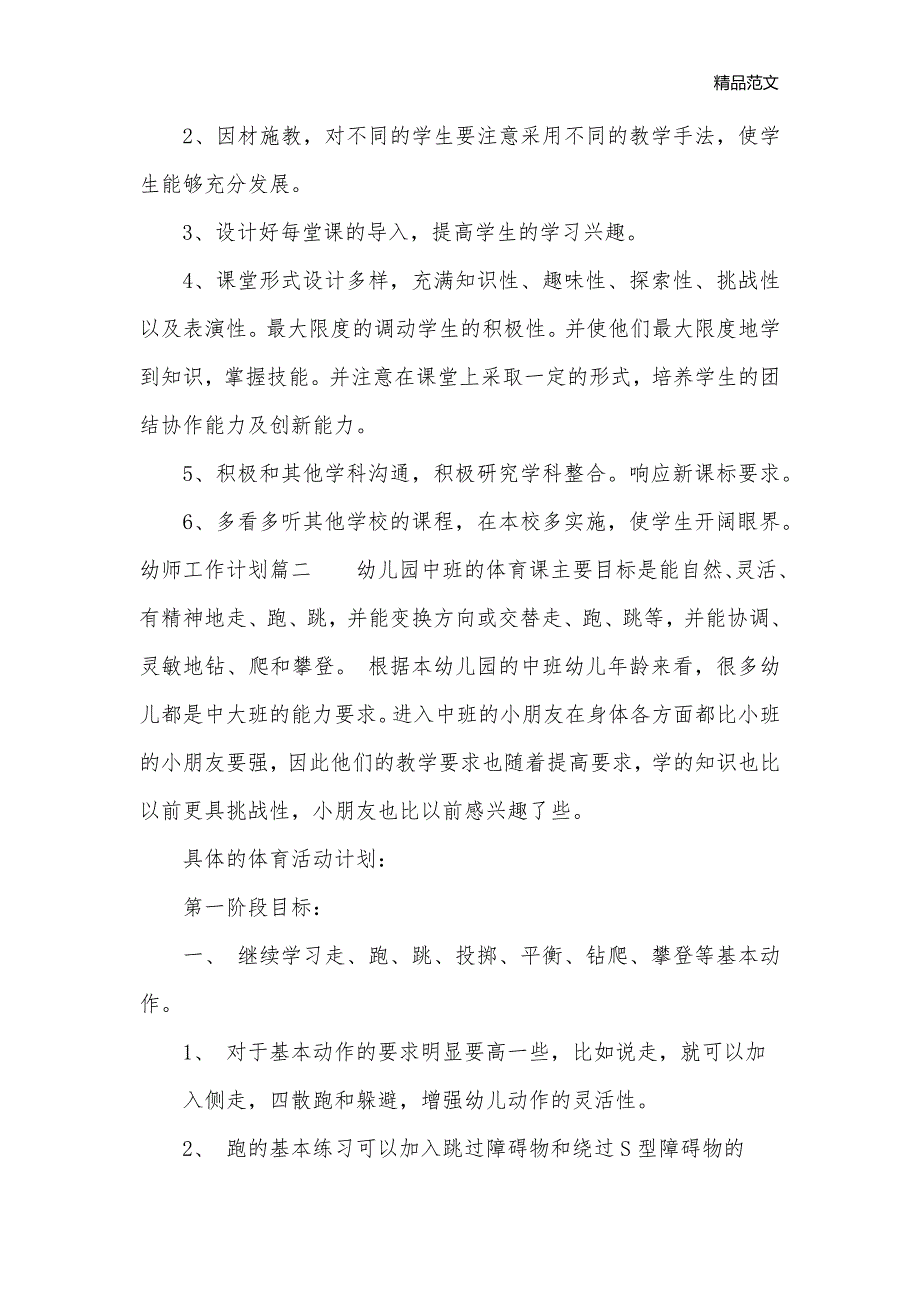 精品范文
2、因材施教，对不同的学生要注意采用不同的教学手法，使学
生能够充分发展。
3、设计好每堂课的导入，提高学生的学习兴趣。
4、课堂形式设计多样，充满知识性、趣味性、探索性、挑战性
以及表演性。最大限度的调动学生的积极性。并使他们最大限度地学
到知识，掌握技能。并注意在课堂上采取一定的形式，培养学生的团
结协作能力及创新能力。
5、积极和其他学科沟通，积极研究学科整合。响应新课标要求。
6、多看多听其他学校的课程，在本校多实施，使学生开阔眼界。
幼师工作计划篇二　　幼儿园中班的体育课主要目标是能自然、灵活、
有精神地走、跑、跳，并能变换方向或交替走、跑、跳等，并能协调、
灵敏地钻、爬和攀登。 根据本幼儿园的中班幼儿年龄来看，很多幼
儿都是中大班的能力要求。进入中班的小朋友在身体各方面都比小班
的小朋友要强，因此他们的教学要求也随着提高要求，学的知识也比
以前更具挑战性，小朋友也比以前感兴趣了些。
具体的体育活动计划：
第一阶段目标：
一、 继续学习走、跑、跳、投掷、平衡、钻爬、攀登等基本动
作。
1、 对于基本动作的要求明显要高一些，比如说走，就可以加
入侧走，四散跑和躲避，增强幼儿动作的灵活性。
2、 跑的基本练习可以加入跳过障碍物和绕过 S 型障碍物的